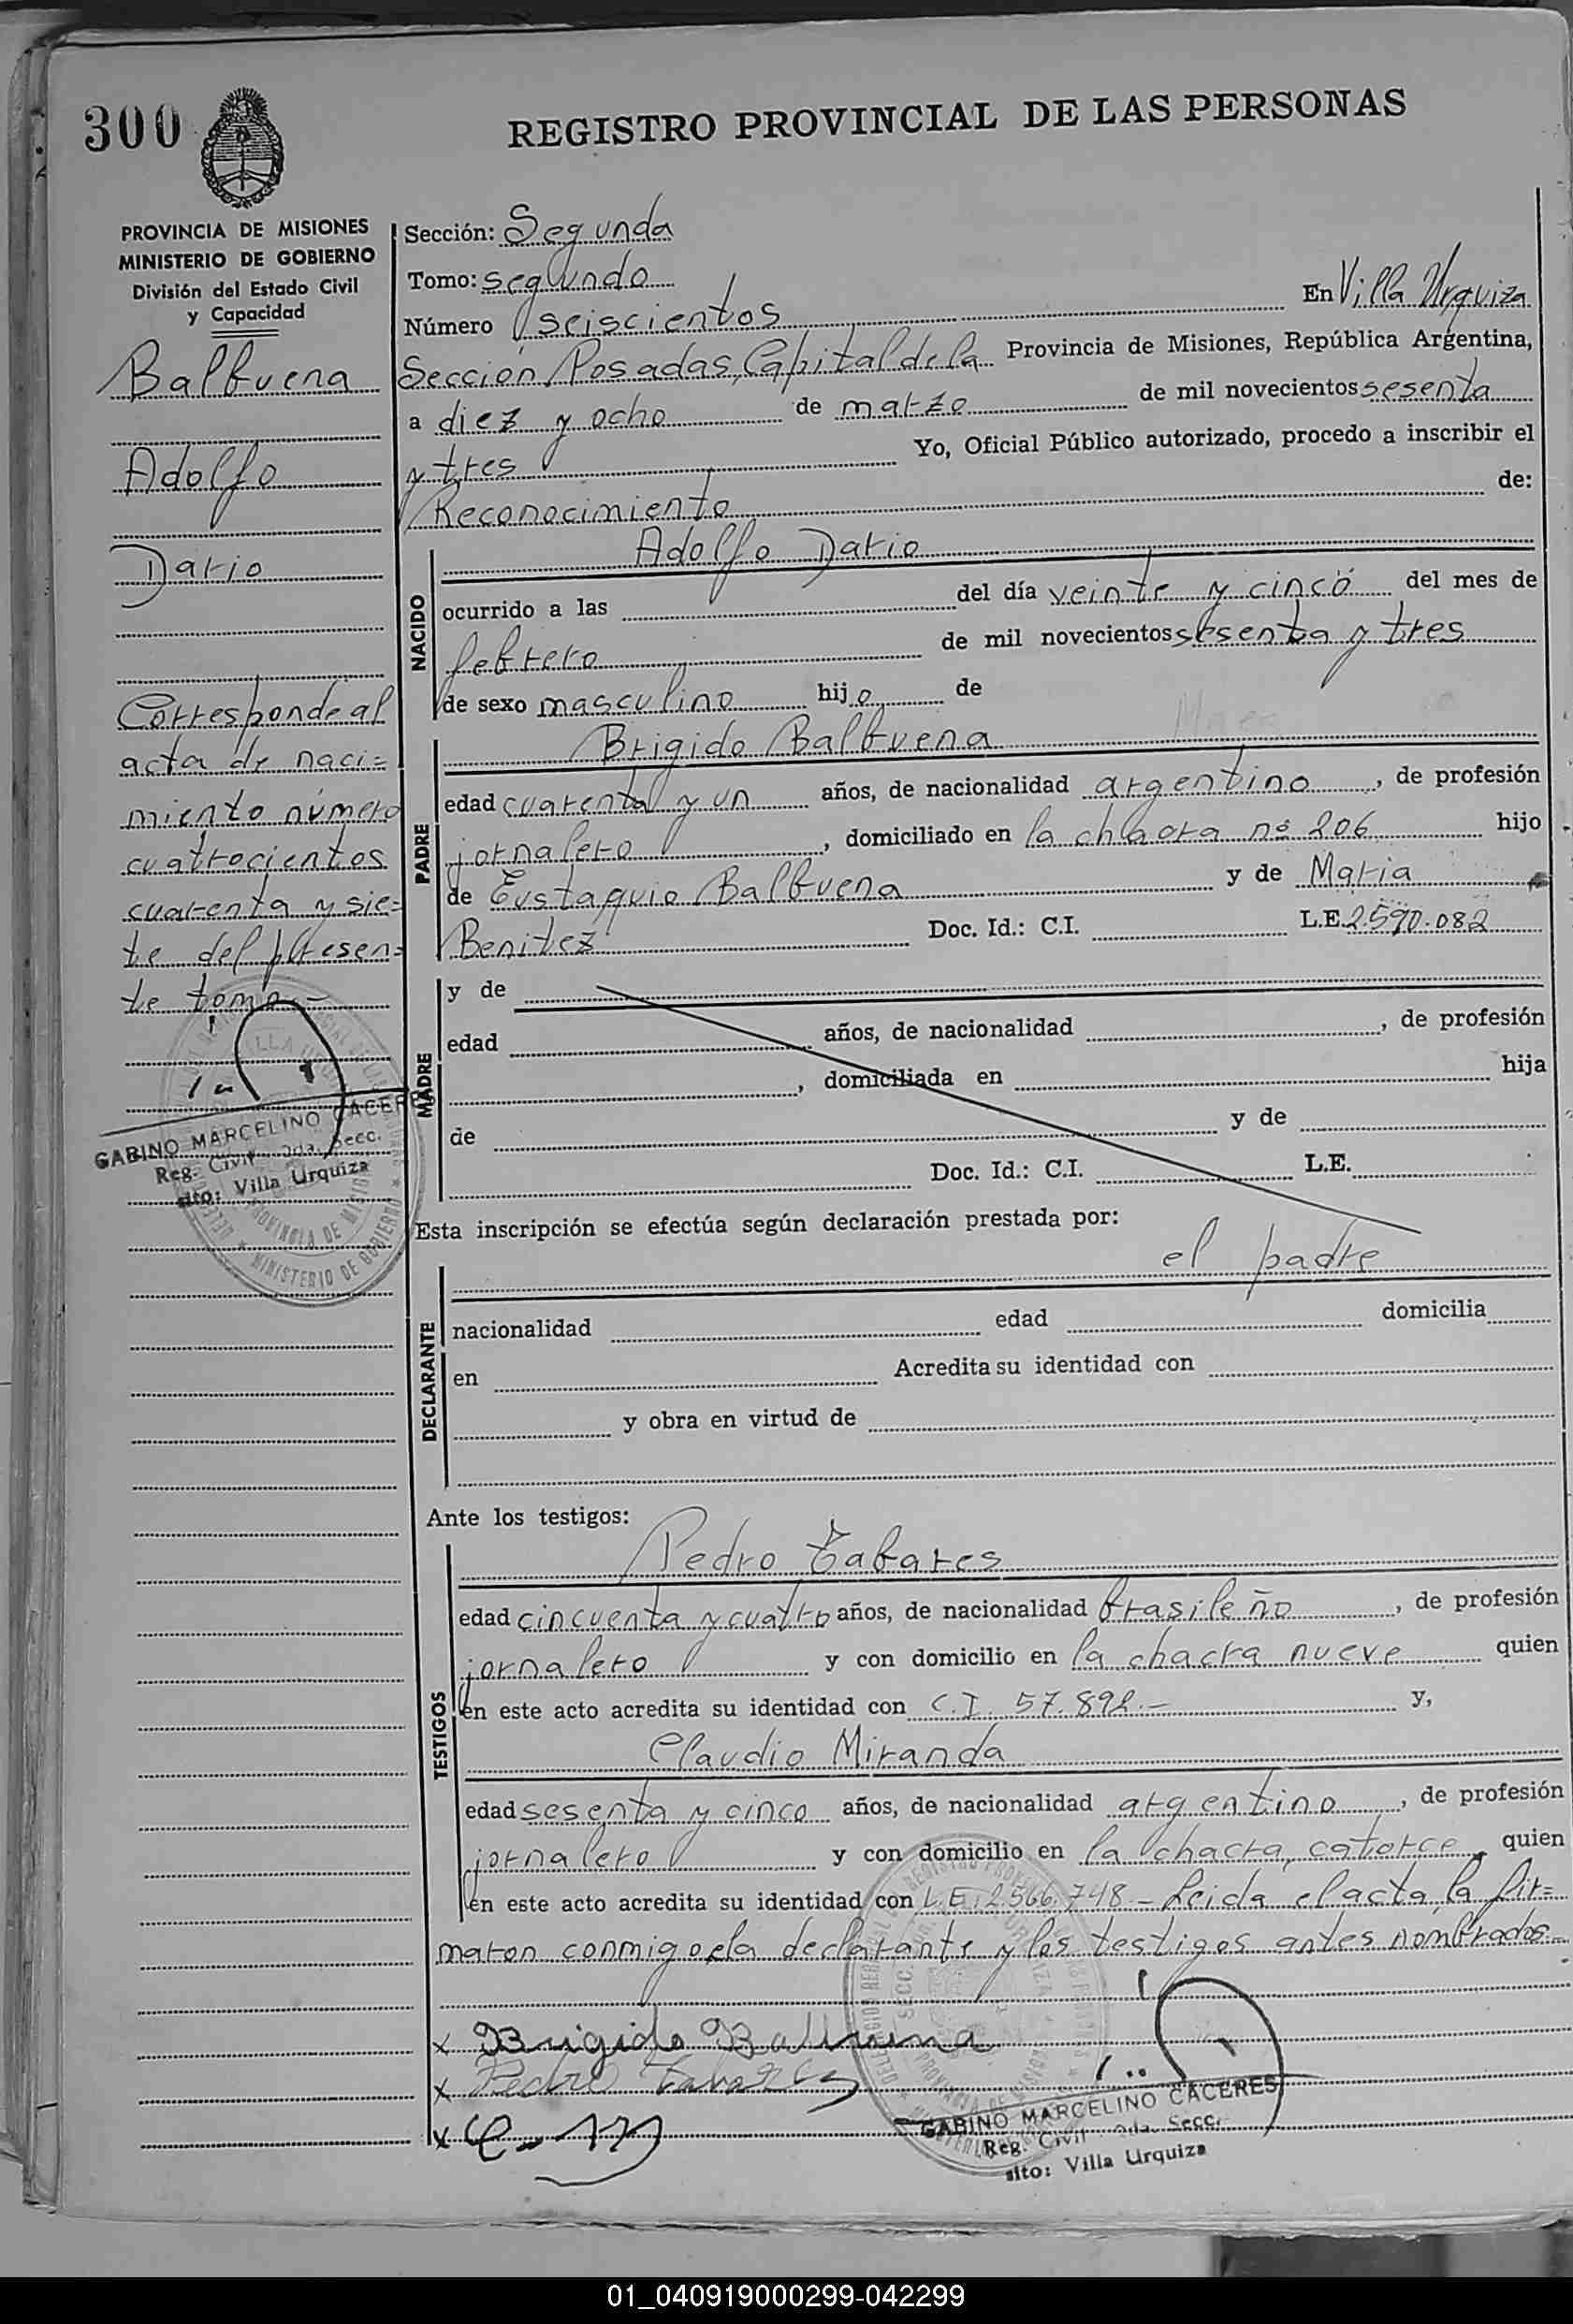 300
REGISTRO PROVINCIAL DE LAS PERSONAS
PROVINCIA DE MISIONES
MINISTERIO DE GOBIERNO
División del Estado Civil
y Capacidad
Balbuena
Adolfo
Dario
Corresponde al
acta de naci=
miento número
cuatrocientos
cuarenta y sie=
te del presen=
te tomo.-
GABINO MARCELINO CACERES
Reg. Civil 2da. Secc.
sito: Villa Urquiza
Sección: Segunda
Tomo: segundo
Número seiscientos En Villa Urquiza
Sección, Posadas, Capital de la Provincia de Misiones, República Argentina,
a diez y ocho de marzo de mil novecientos sesenta
y tres Yo, Oficial Público autorizado, procedo a inscribir el
Reconocimiento de:
NACIDO
Adolfo Dario
ocurrido a las del día veinte y cinco del mes de
febrero de mil novecientos sesenta y tres
de sexo masculino hijo de
PADRE
Brigido Balbuena
edad cuarenta y un años, de nacionalidad argentino, de profesión
jornalero, domiciliado en la chacra nº 206 hijo
de Eustaquio Balbuena y de Maria
Benitez Doc. Id.: C.I. L.E. 2.590.082
MADRE
y de
edad años, de nacionalidad , de profesión
, domiciliada en hija
de y de
Doc. Id.: C.I. L.E.
Esta inscripción se efectúa según declaración prestada por:
DECLARANTE
el padre
nacionalidad edad domicilia
en Acredita su identidad con
y obra en virtud de
Ante los testigos:
TESTIGOS
Pedro Tabares
edad cincuenta y cuatro años, de nacionalidad brasileño, de profesión
jornalero y con domicilio en la chacra nueve quien
en este acto acredita su identidad con C.I. 57.892.- y,
Claudio Miranda
edad sesenta y cinco años, de nacionalidad argentino, de profesión
jornalero y con domicilio en la chacra catorce, quien
en este acto acredita su identidad con L.E. 2.566.748 - Leida el acta, la fir=
maron conmigo la declarante y los testigos antes nombrados.-
x Brigido Balbuena
x Pedro Tabares
x
GABINO MARCELINO CACERES
Reg. Civil 2da. Secc.
sito: Villa Urquiza
01_040919000299-042299